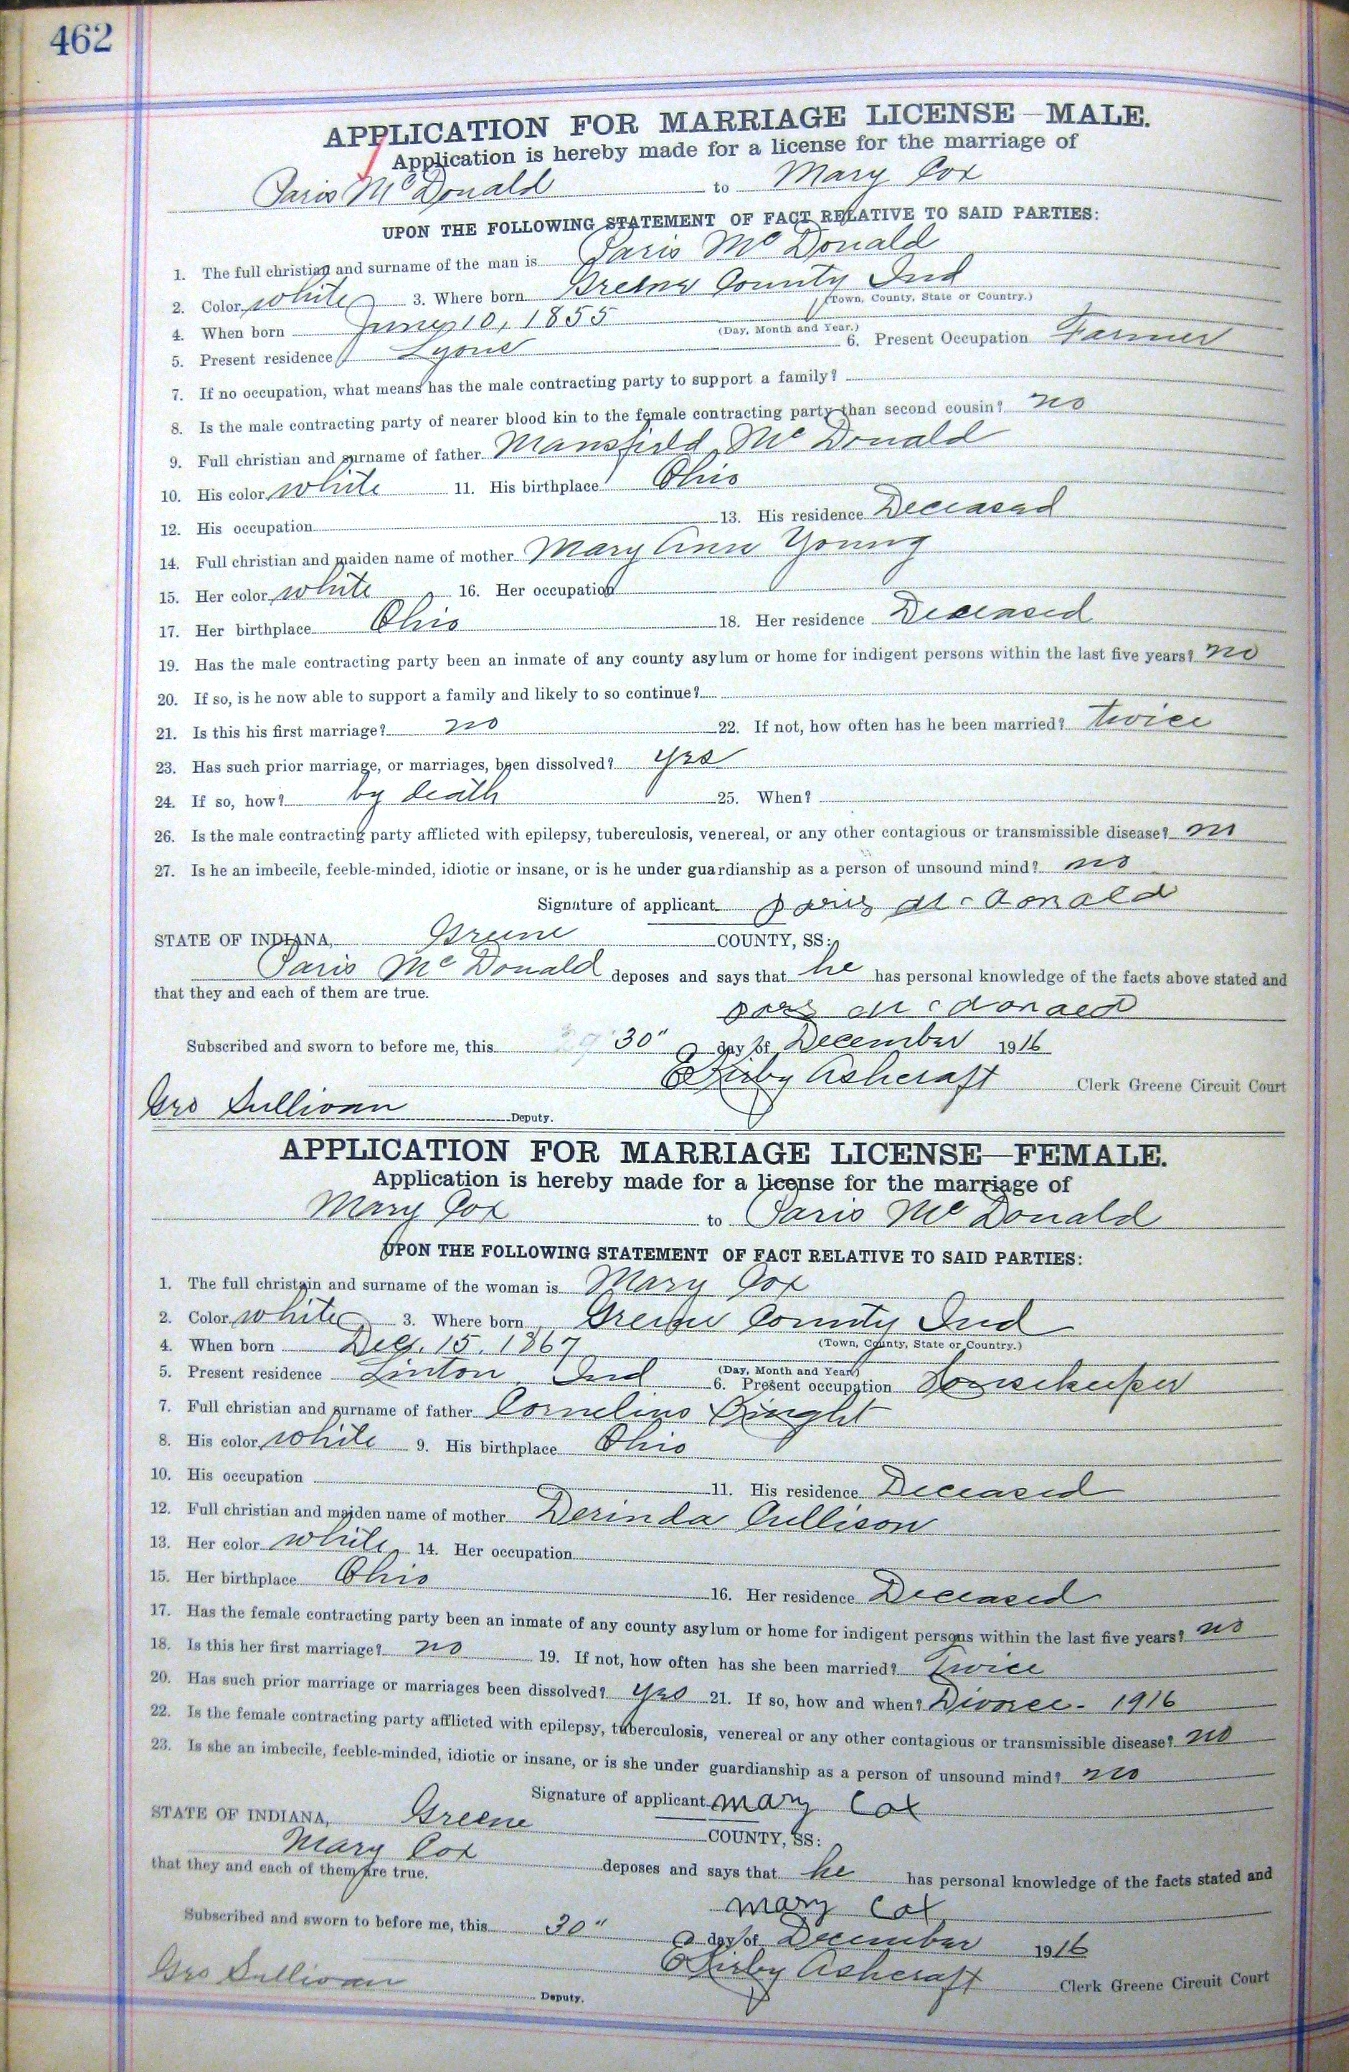 462
APPLICATION FOR MARRIAGE LICENSE—MALE.
Application is hereby made for a license for the marriage of
Paris McDonald to Mary Cox
UPON THE FOLLOWING STATEMENT OF FACT RELATIVE TO SAID PARTIES:
1. The full christian and surname of the man is Paris McDonald
2. Color white 3. Where born Greene County Ind
(Town, County, State or Country.)
4. When born June 10, 1855
(Day, Month and Year.)
5. Present residence Lyons 6. Present Occupation Farmer
7. If no occupation, what means has the male contracting party to support a family?
8. Is the male contracting party of nearer blood kin to the female contracting party than second cousin? no
9. Full christian and surname of father Mansfield McDonald
10. His color white 11. His birthplace Ohio
12. His occupation 13. His residence Deceased
14. Full christian and maiden name of mother Mary Ann Young
15. Her color white 16. Her occupation
17. Her birthplace Ohio 18. Her residence Deceased
19. Has the male contracting party been an inmate of any county asylum or home for indigent persons within the last five years? no
20. If so, is he now able to support a family and likely to so continue?
21. Is this his first marriage? no 22. If not, how often has he been married? twice
23. Has such prior marriage, or marriages, been dissolved? yes
24. If so, how? by death 25. When?
26. Is the male contracting party afflicted with epilepsy, tuberculosis, venereal, or any other contagious or transmissible disease? no
27. Is he an imbecile, feeble-minded, idiotic or insane, or is he under guardianship as a person of unsound mind? no
Signature of applicant Paris McDonald
STATE OF INDIANA, Greene COUNTY, SS:
Paris McDonald deposes and says that he has personal knowledge of the facts above stated and
that they and each of them are true.
McDonald
Subscribed and sworn to before me, this 30" day of December 1916
E Kirby Ashcraft Clerk Greene Circuit Court
Geo Sullivan Deputy.
APPLICATION FOR MARRIAGE LICENSE—FEMALE.
Application is hereby made for a license for the marriage of
Mary Cox to Paris McDonald
UPON THE FOLLOWING STATEMENT OF FACT RELATIVE TO SAID PARTIES:
1. The full christain and surname of the woman is Mary Cox
2. Color white 3. Where born Greene County Ind
(Town, County, State or Country.)
4. When born Dec. 15. 1867
(Day, Month and Year)
5. Present residence Linton, Ind 6. Present occupation Housekeeper
7. Full christian and surname of father Cornelius
8. His color white 9. His birthplace Ohio
10. His occupation 11. His residence Deceased
12. Full christian and maiden name of mother Derinda Cullison
13. Her color white 14. Her occupation
15. Her birthplace Ohio 16. Her residence Deceased
17. Has the female contracting party been an inmate of any county asylum or home for indigent persons within the last five years? no
18. Is this her first marriage? no 19. If not, how often has she been married? Twice
20. Has such prior marriage or marriages been dissolved? yes 21. If so, how and when? Divorce - 1916
22. Is the female contracting party afflicted with epilepsy, tuberculosis, venereal or any other contagious or transmissible disease? no
23. Is she an imbecile, feeble-minded, idiotic or insane, or is she under guardianship as a person of unsound mind? no
Signature of applicant Mary Cox
STATE OF INDIANA, Greene COUNTY, SS:
Mary Cox deposes and says that he has personal knowledge of the facts stated and
that they and each of them are true.
Mary Cox
Subscribed and sworn to before me, this 30" day of December 1916
E Kirby Ashcraft Clerk Greene Circuit Court
Geo Sullivan Deputy.